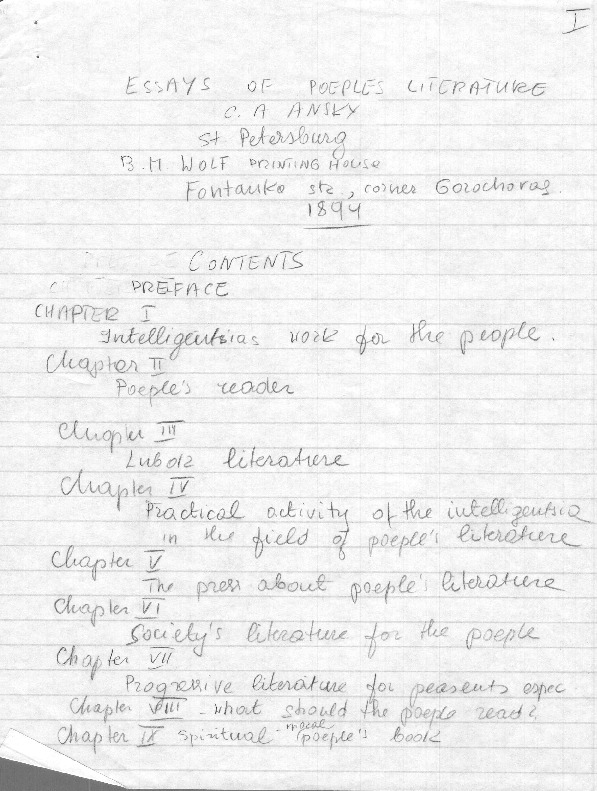 I
ESSAYS OF POEPLES LITERATURE
C. A ANSKY
St Petersburg
B. M. WOLF PRINTING HOUSE
Fontanko str, corner Gorochovas.
1894
CONTENTS
PREFACE
CHAPTER I
Intelligentsias work for the people.
Chapter II
Poeple's reader
Chapter III
Lubok literature
Chapter IV
Practical activity of the intelligentsia
in the field of poeple's literature
Chapter V
The press about poeple's literature
Chapter VI
Society's literature for the poeple
Chapter VII
Progressive literature for peasents espec.
Chapter VIII - what should the poeple read?
Chapter IX spiritual-moral poeple's book